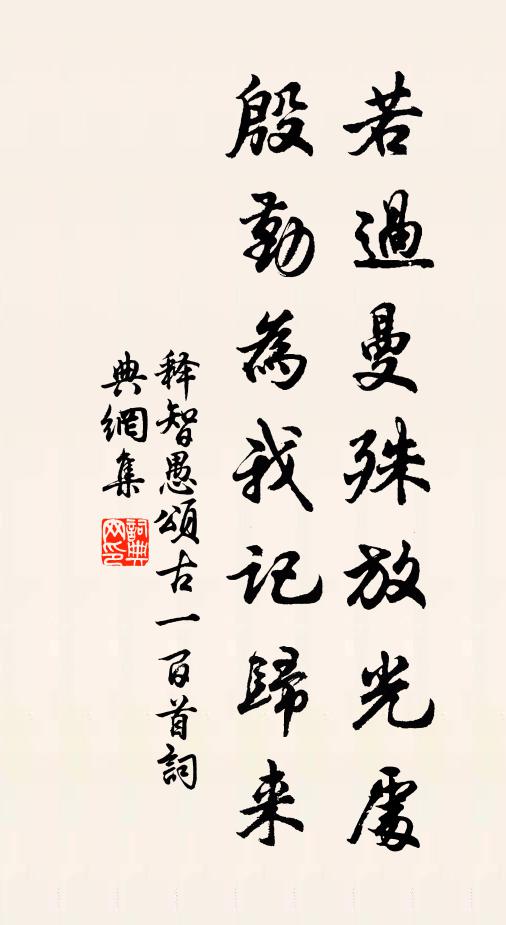 若過曼殊放光處
殷勤為我記歸来
釋智愚頌古一百首詞
典網集
詞典
网印